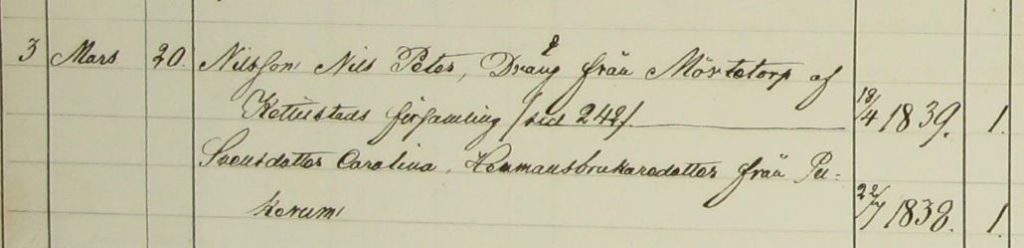 3 Mars 20. Nilsson Nils Peter, Dräng från Mörtetorp af
Kettilstads församling /sid 242/. 18/4 1839. 1.
Svensdotter Carolina, Hemmansbrukaredotter från Pu-
kerum 22/7 1838. 1.